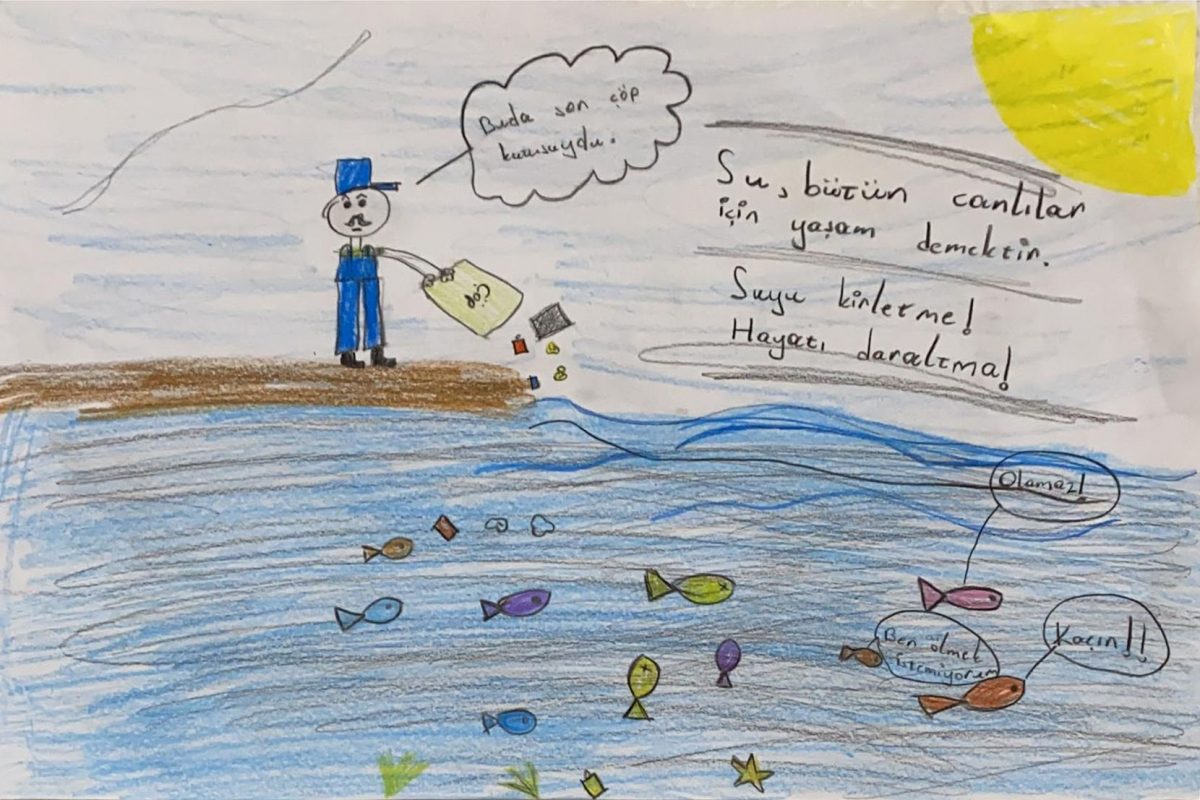 Buda son çöp
kutusuydu.
Su, bütün canlılar
için yaşam demektir.
Suyu kirletme!
Hayatı daraltma!
Çöp
Olamaz!
Ben ölmek
istemiyorum
Kaçın!!